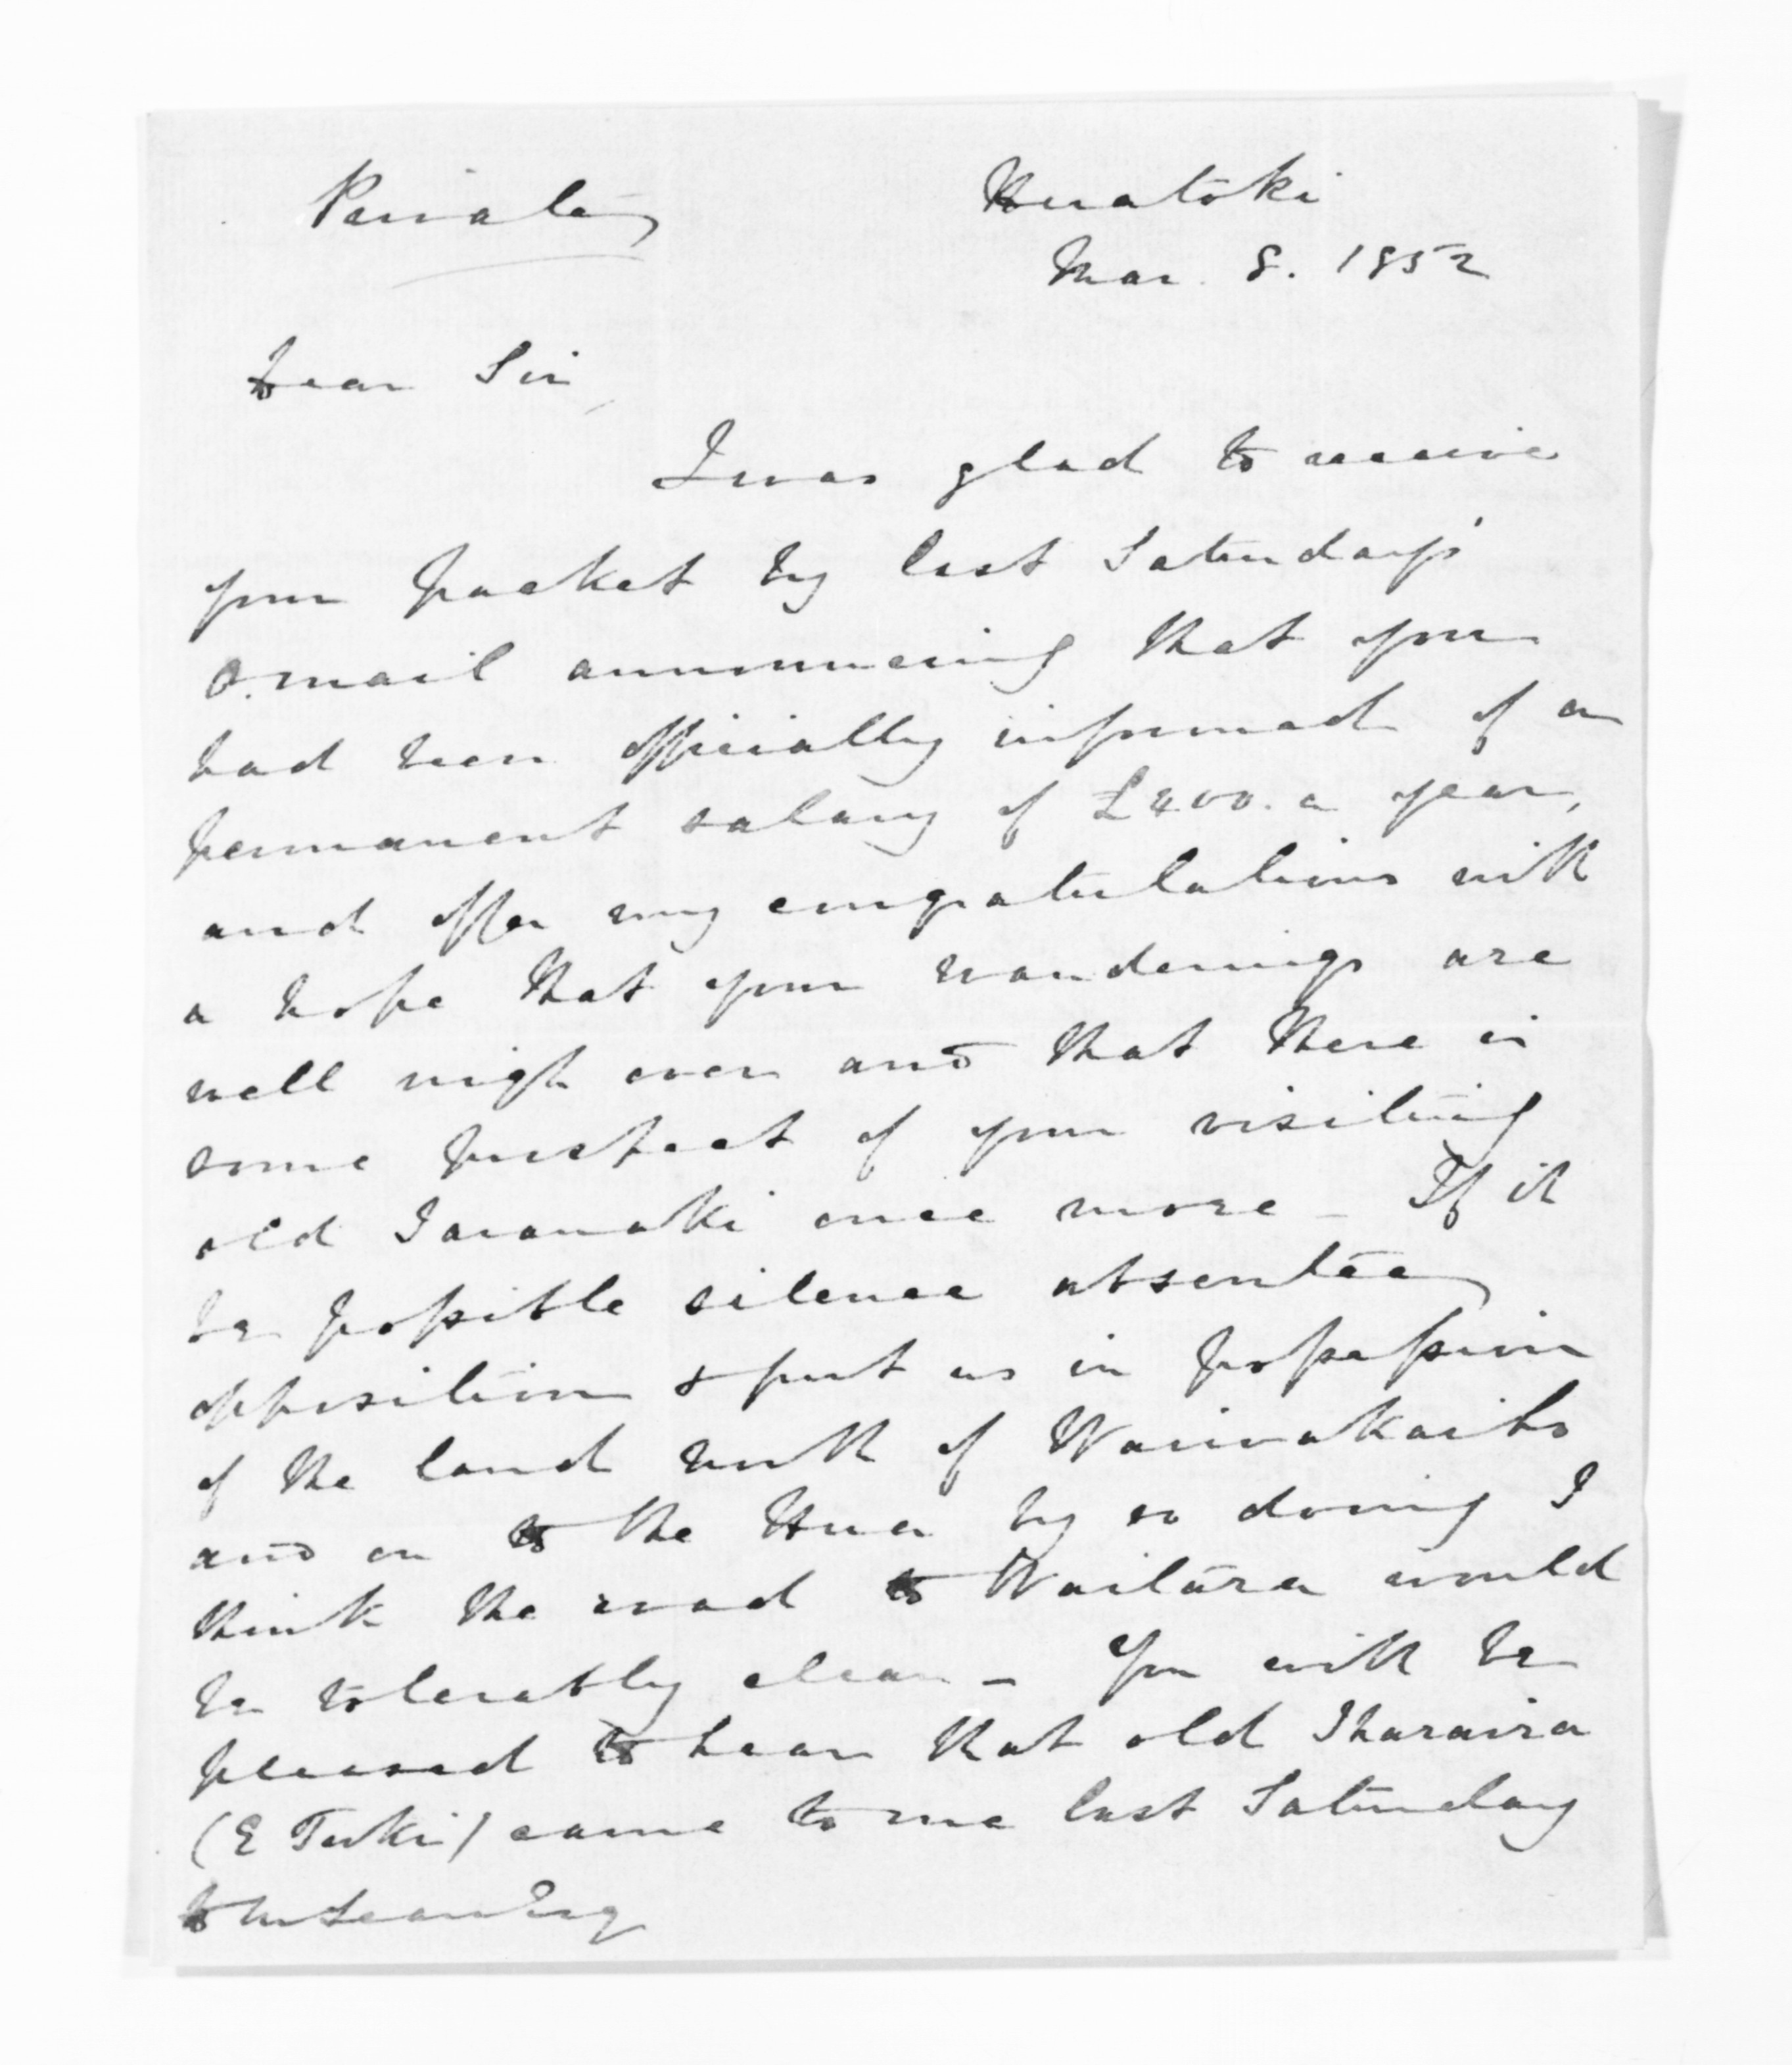 Private
Huatoki
Mar. 8. 1852
Dear Sir
I was glad to receive
your packet by last Saturday's
O. mail announcing that you
had been officially informed of a
permanent salary of £400. a year,
and offer my congratulations with
a hope that your wanderings are
well nigh over and that there is
some prospect of your visiting
old Taranaki once more – If it
be possible silence absentee
opposition & put us in possession
of the land north of Waiwakaiho
and on to the Hua by so doing I
think the road to Waitara would
be tolerably clear – You will be
pleased to hear that old Iharaira
(E Tuki) came to me last Saturday
D McLean Esq